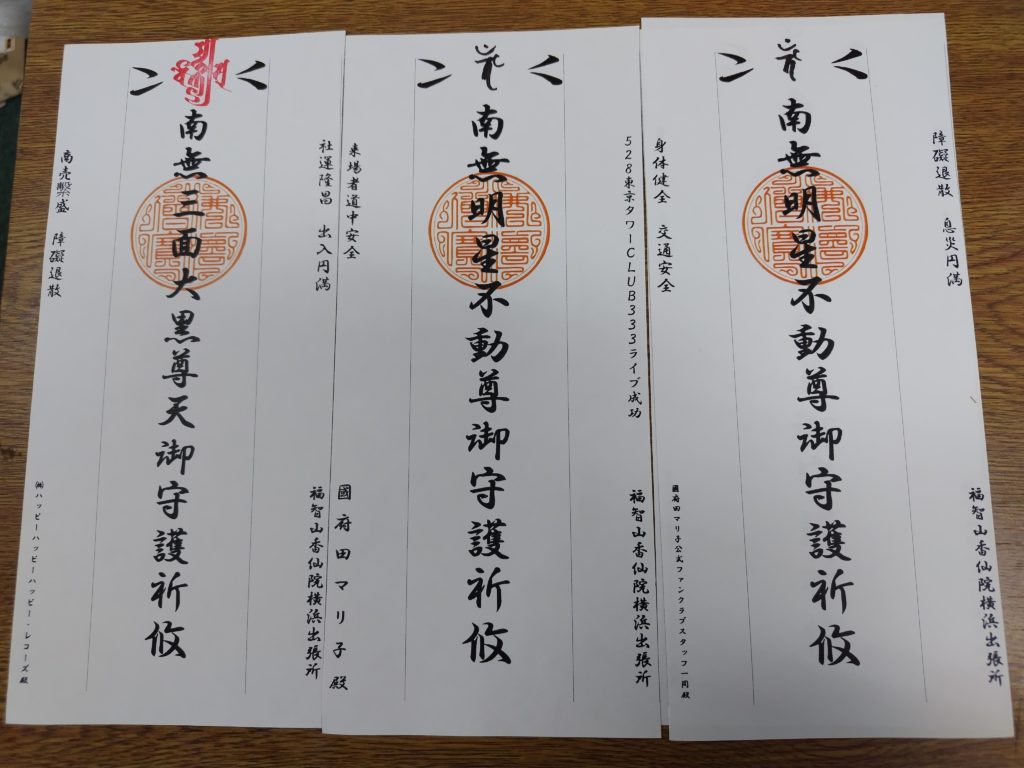 障礙退散 息災円満
福智山香仙院横浜出張所
南無明星不動尊御守護祈攸
身体健全 交通安全
國府田マリ子公式ファンクラブスタッフ一同殿
528東京タワーCLUB333ライブ成功
福智山香仙院横浜出張所
南無明星不動尊御守護祈攸
来場者道中安全
國府田マリ子殿
社運隆昌 出入円満
福智山香仙院横浜出張所
南無三面大黒尊天御守護祈攸
商売繫盛 障礙退散
㈱ハッピーハッピーハッピー・レコーズ殿